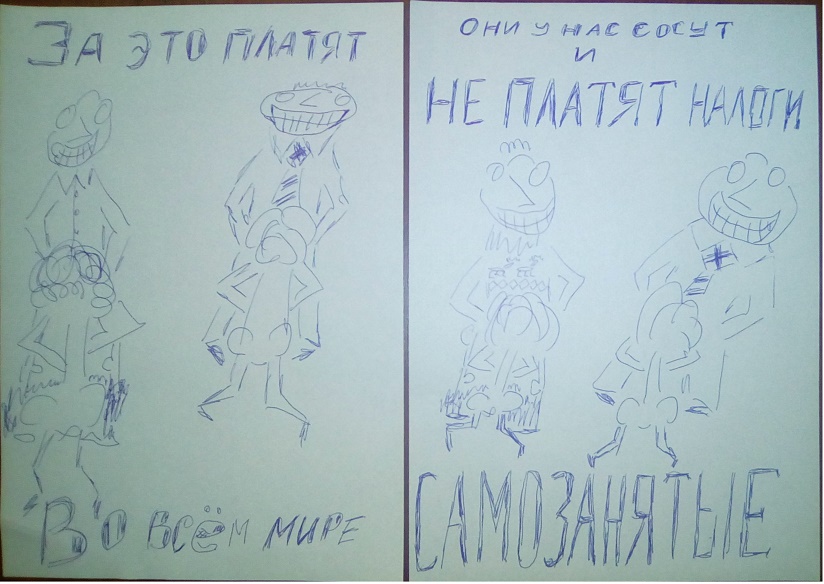 ЗА ЭТО ПЛАТЯТ
ВО ВСЁМ МИРЕ
ОНИ У НАС СОСУТ
И
НЕ ПЛАТЯТ НАЛОГИ
САМОЗАНЯТЫЕ